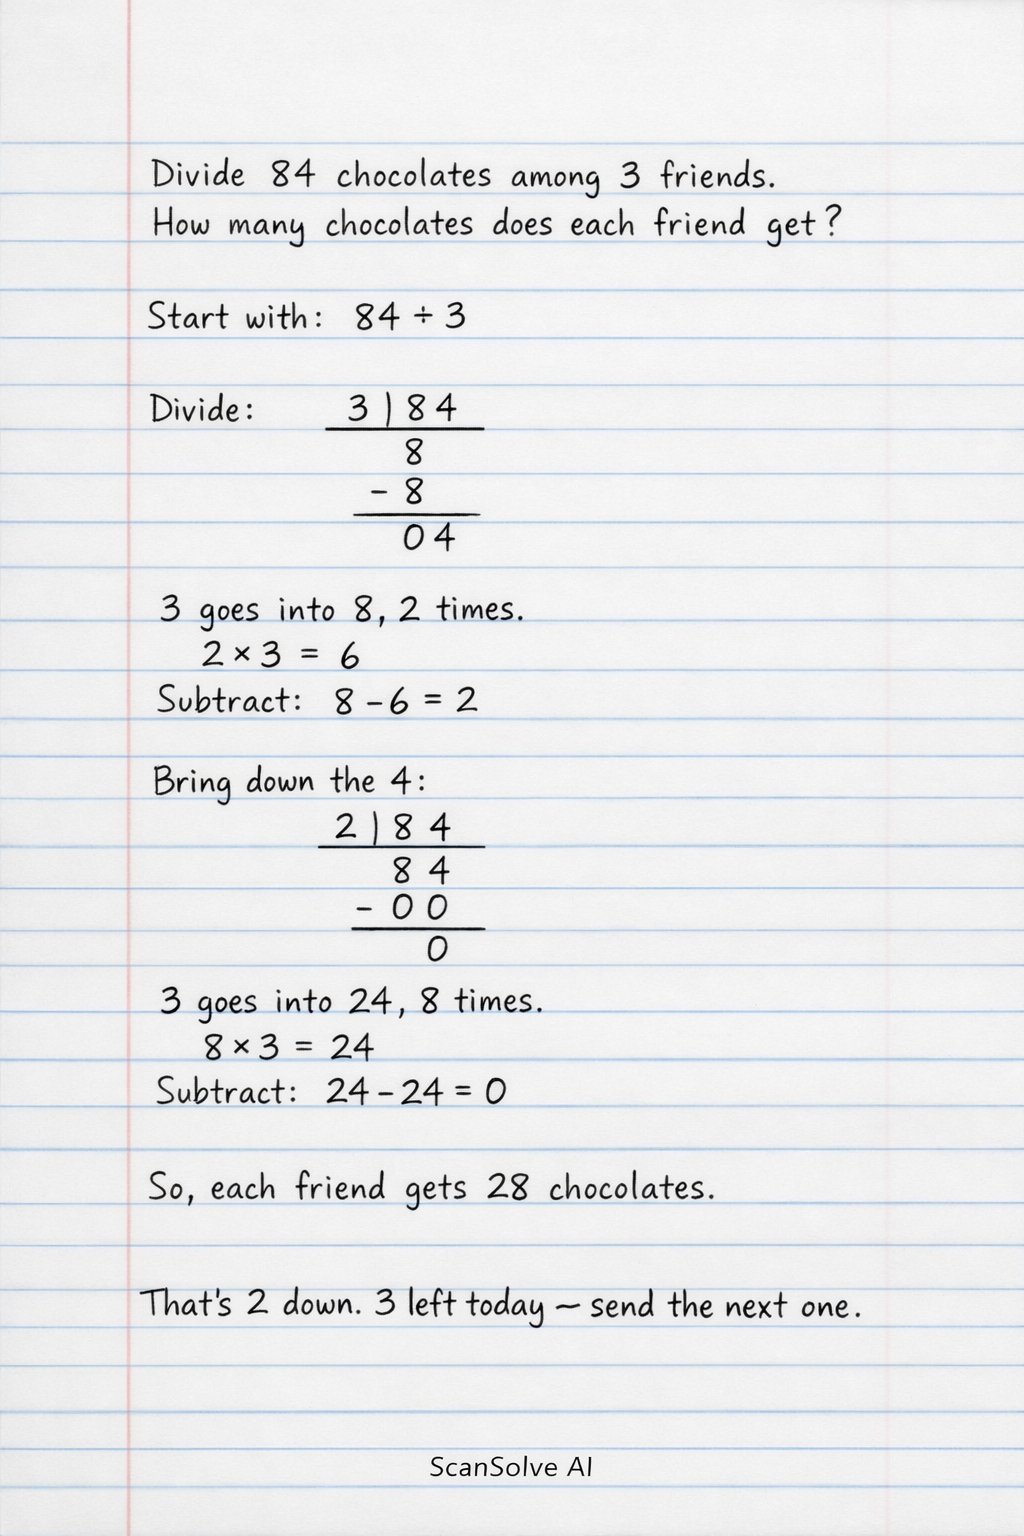 Divide 84 chocolates among 3 friends.
How many chocolates does each friend get?
Start with: 84 ÷ 3
Divide: 3 ) 84
8
- 8
04
3 goes into 8, 2 times.
2 × 3 = 6
Subtract: 8 - 6 = 2
Bring down the 4:
2 ) 84
84
- 00
0
3 goes into 24, 8 times.
8 × 3 = 24
Subtract: 24 - 24 = 0
So, each friend gets 28 chocolates.
That's 2 down. 3 left today – send the next one.
ScanSolve AI